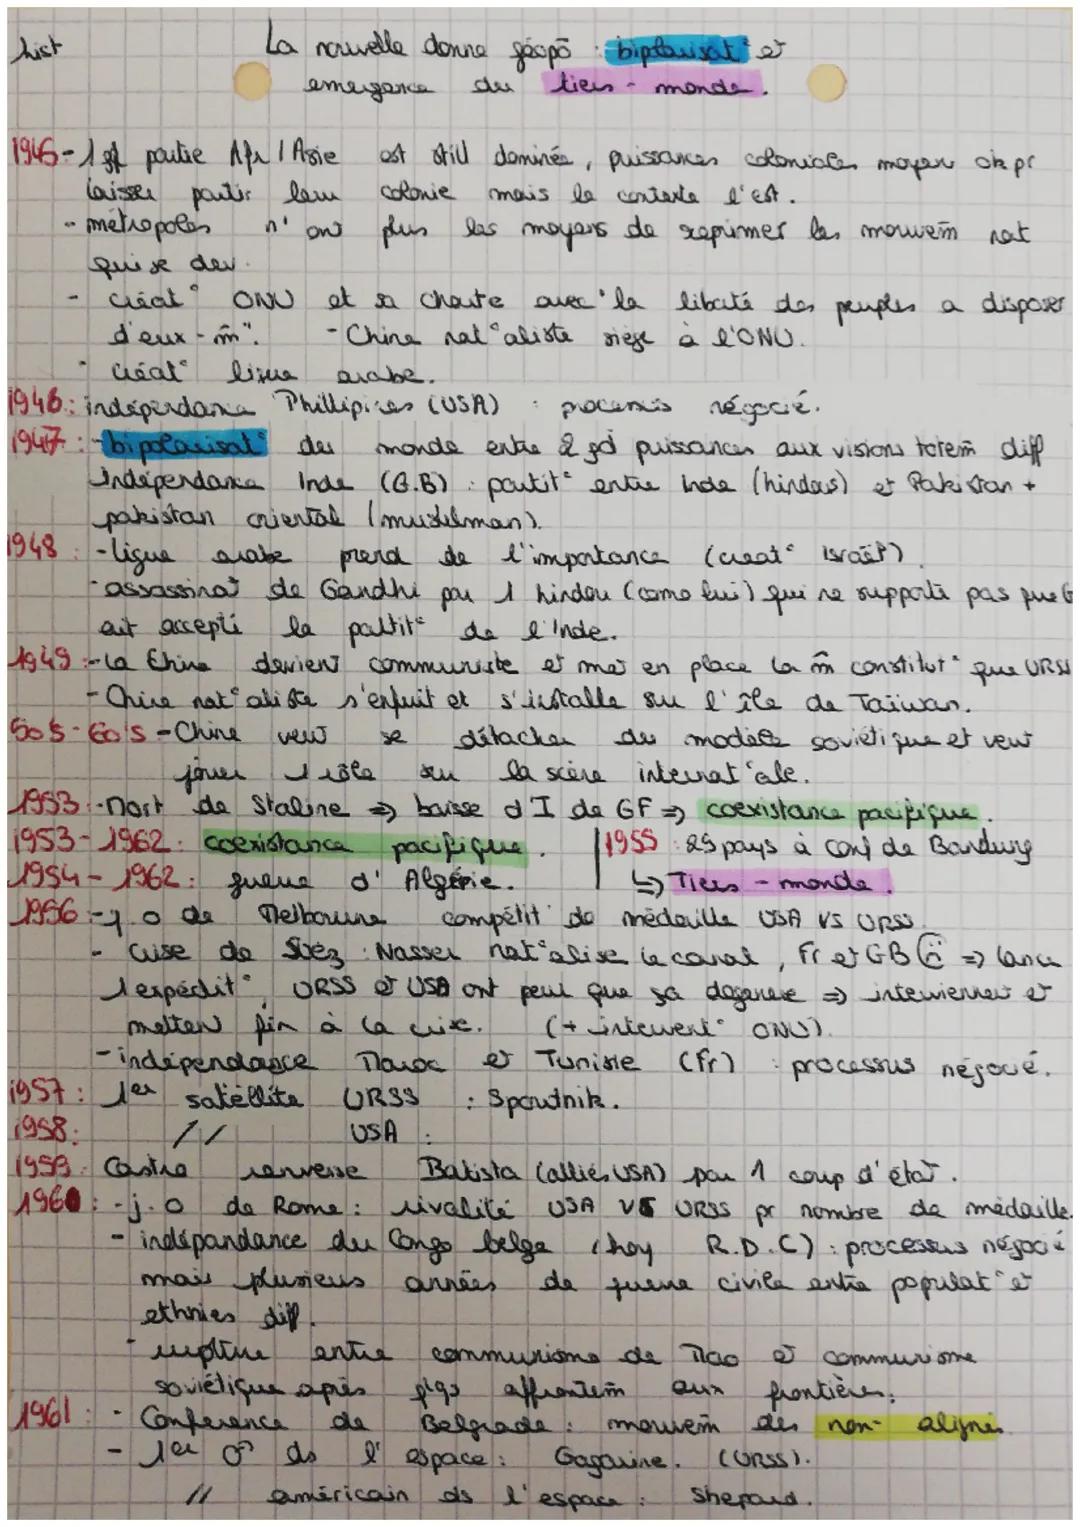 hist
La nouvelle donne géopô : bipolarisat° et
emergence du tiers-monde.
1945 - 1 gd partie Afr / Asie est still dominée, puissances coloniales moyen ok pr
laisser partir leur colonie mais le contexte l'est.
- métropoles n'ont plus les moyens de reprimer les mouvem nat
qui se dev.
- créat° ONU et sa charte avec "la liberté des peuples a disposer
d'eux-m̂". - Chine nat°aliste siège à l'ONU.
- créat° ligue arabe.
1946 : indépendance Phillipines (USA) : processus négocié.
1947 : - bipolarisat° du monde entre 2 gd puissances aux visions totem diff
Indépendance Inde (G.B) : partit° entre Inde (hindous) et Pakistan +
pakistan oriental (musulman).
1948 : - ligue arabe prend de l'importance (creat° Israël)
- assassinat de Gandhi par 1 hindou (como lui) qui ne supporte pas que G
ait accepté la partit° de l'Inde.
1949 : - la Chine devient communiste et met en place la m̂ constitut° que URSS
- Chine nat°aliste s'enfuit et s'installe sur l'île de Taïwan.
50's-60's - Chine veut se détacher du modèle soviétique et veut
jouer 1 rôle sur la scène internat°ale.
1953 : - Mort de Staline => baisse d'I de GF => coexistance pacifique.
1953-1962 : coexistance pacifique.
1954-1962 : guerre d'Algérie.
1955 : 29 pays à conf de Bandung
↳ Tiers-monde.
1956 : - j.o de Melbourne compétit° de médaille USA VS URSS
- crise de Suez : Nasser nat°alise le canal, Fr et GB ☹ => lance
1 expédit°, URSS et USA ont peur que sa dégenere => interviennent et
mettent fin à la crise. (+ intervent° ONU).
- indépendance Maroc et Tunisie (Fr) : processus négocié.
1957 : 1er satéllite URSS : Spoutnik.
1958 : // USA :
1959 : Castro renverse Batista (allié USA) par 1 coup d'état.
1960 : - j.o de Rome : rivalité USA VS URSS pr nombre de médaille.
- indépandance du Congo belge (hoy R.D.C) : processus négocié
mais plusieurs années de guerre civile entre populat° et
ethnies diff.
- rupture entre communisme de Mao et communisme
soviétique après qlqs affrontem aux frontières.
1961 : - Conférence de Belgrade : mouvem des non-alignés.
- 1er ♂ ds l'espace : Gagarine. (URSS).
// américain ds l'espace : Shepard.